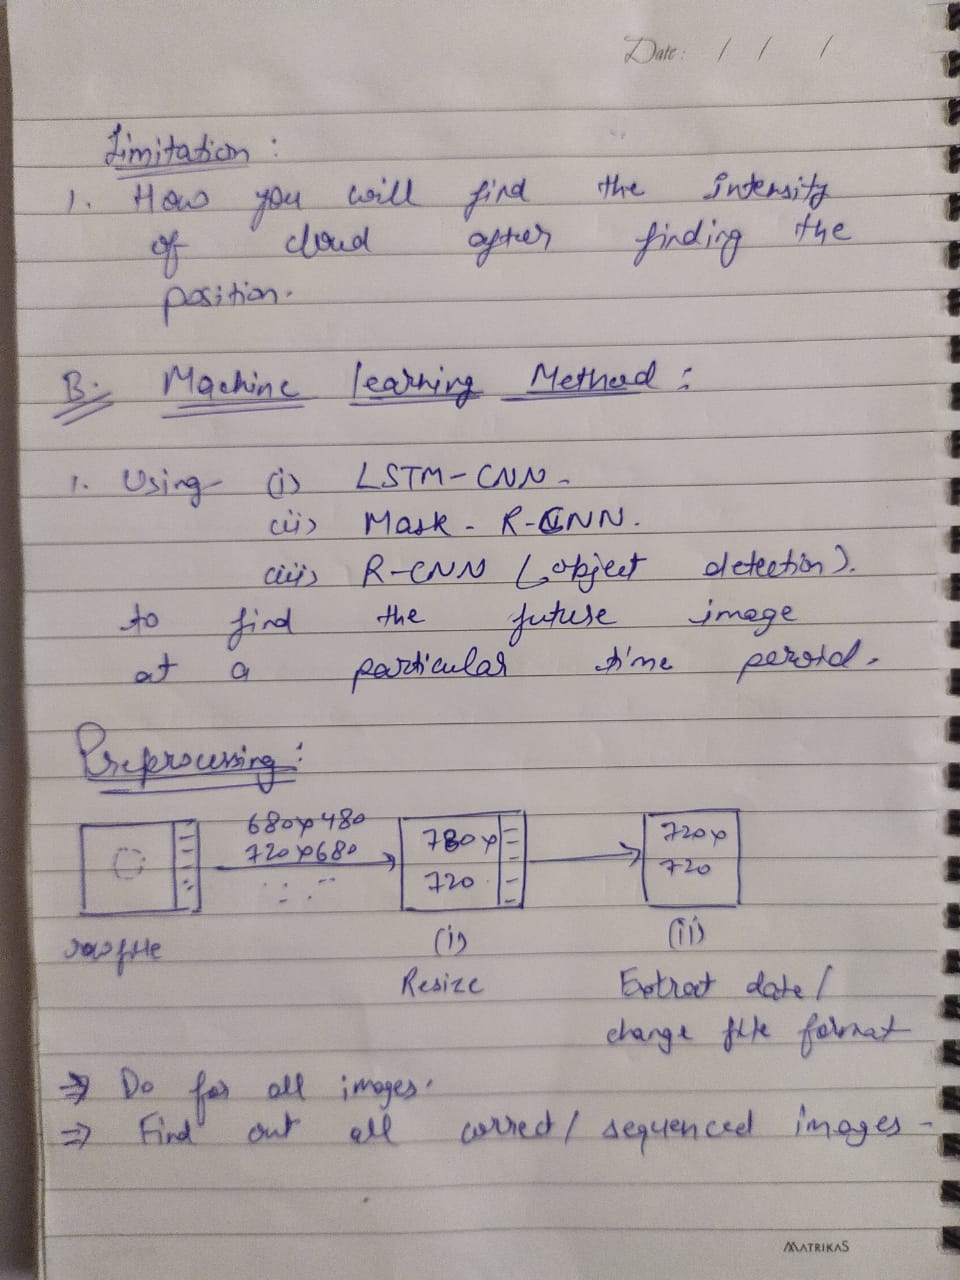 Date: / / /
Limitation :
1. How you will find the intensity
of cloud after finding the
position.
B. Machine learning Method :
1. Using (i) LSTM-CNN.
(ii) Mask - R-CNN.
(iii) R-CNN (object detection).
to find the future image
at a particular time period.
Preprocessing :
680x480
720x680
780x
720
720x
720
raw file
(i)
(ii)
Resize
Extract date /
change file format
⇒ Do for all images.
⇒ Find out all correct / sequenced images -
MATRIKAS